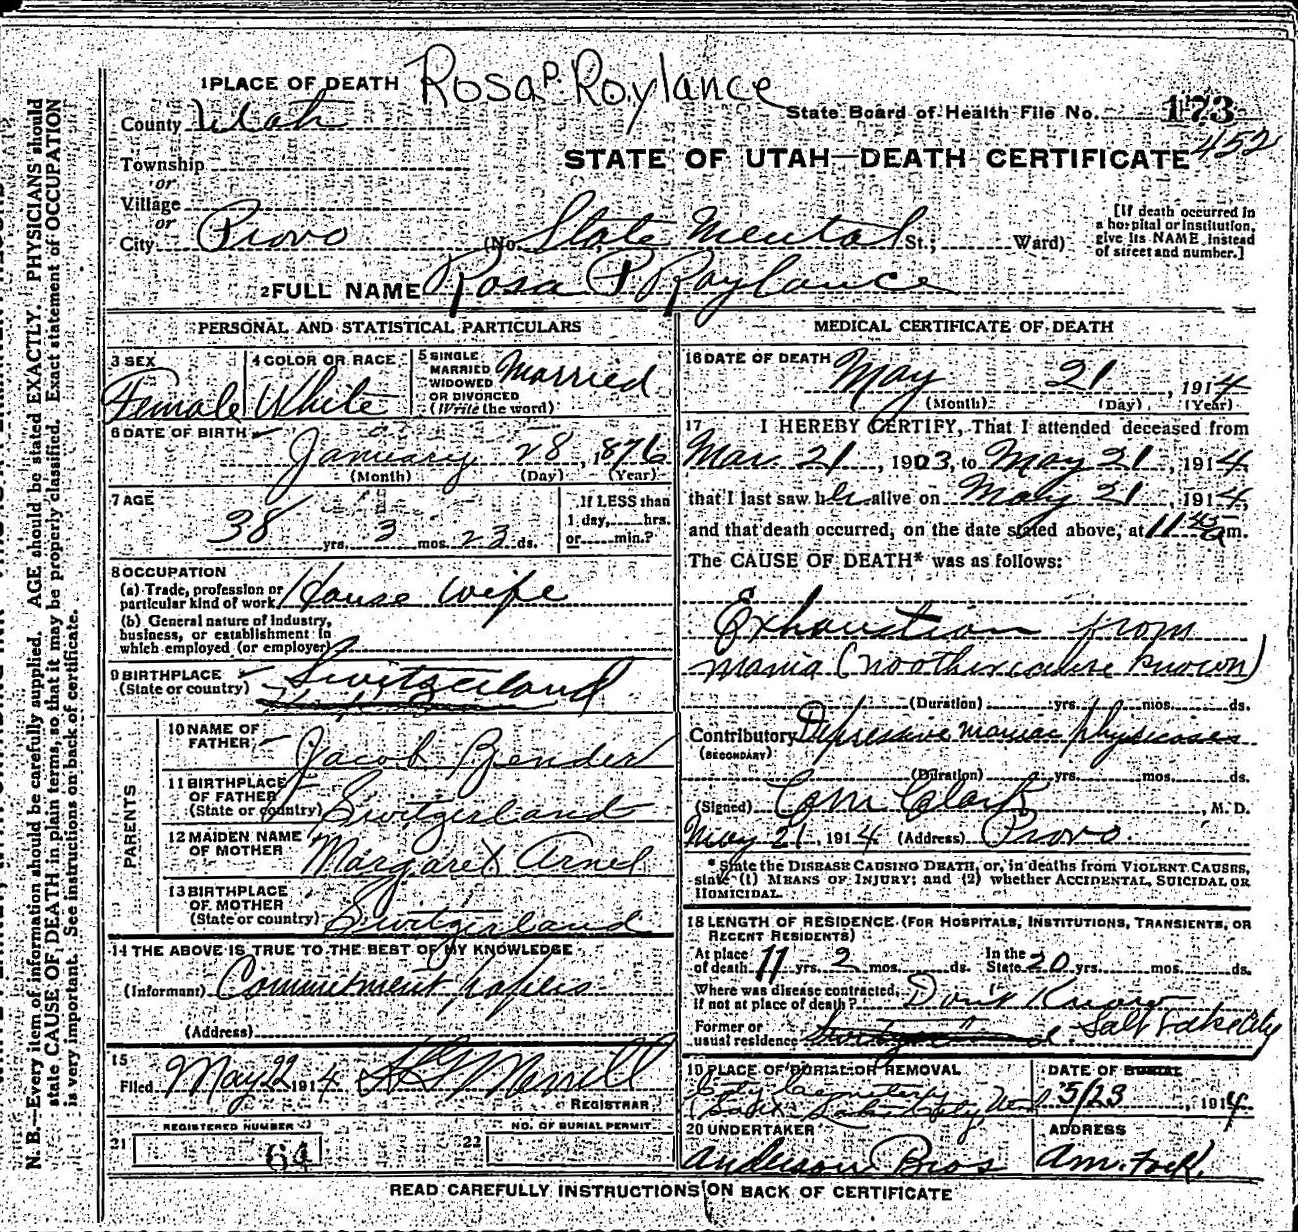 Rosa P. Roylance
1 PLACE OF DEATH
County Utah
State Board of Health File No. 173
452
Township
or
STATE OF UTAH—DEATH CERTIFICATE
Village
or
City Provo (No. State Mental St.; Ward)
[If death occurred in
a hospital or institution,
give its NAME instead
of street and number.]
2 FULL NAME Rosa P. Roylance
PERSONAL AND STATISTICAL PARTICULARS
3 SEX
Female
4 COLOR OR RACE
White
5 SINGLE
MARRIED
WIDOWED
OR DIVORCED
(Write the word)
Married
6 DATE OF BIRTH
January 28, 1876
(Month) (Day) (Year)
7 AGE
38 yrs. 3 mos. 23 ds.
If LESS than
1 day, hrs.
or min.?
8 OCCUPATION
(a) Trade, profession or
particular kind of work House wife
(b) General nature of industry,
business, or establishment in
which employed (or employer)
9 BIRTHPLACE
(State or country) Switzerland
PARENTS
10 NAME OF
FATHER Jacob Zender
11 BIRTHPLACE
OF FATHER
(State or country) Switzerland
12 MAIDEN NAME
OF MOTHER Margaret Arnel
13 BIRTHPLACE
OF MOTHER
(State or country) Switzerland
14 THE ABOVE IS TRUE TO THE BEST OF MY KNOWLEDGE
(Informant) Commitment papers
(Address)
15
Filed May 22 1914 Merrill
REGISTRAR
REGISTERED NUMBER
21 64
NO. OF BURIAL PERMIT
22
MEDICAL CERTIFICATE OF DEATH
16 DATE OF DEATH
May 21, 1914
(Month) (Day) (Year)
17 I HEREBY CERTIFY, That I attended deceased from
Mar. 21, 1903, to May 21, 1914,
that I last saw her alive on May 21, 1914,
and that death occurred, on the date stated above, at 11 45 a m.
The CAUSE OF DEATH* was as follows:
Exhaustion from
mania (no other cause known)
(Duration) yrs. mos. ds.
Contributory Depressive maniac physicoses
(SECONDARY)
(Duration) yrs. mos. ds.
(Signed) Clark, M. D.
May 21, 1914 (Address) Provo.
* State the DISEASE CAUSING DEATH, or, in deaths from VIOLENT CAUSES,
state (1) MEANS OF INJURY; and (2) whether ACCIDENTAL, SUICIDAL OR
HOMICIDAL.
18 LENGTH OF RESIDENCE (FOR HOSPITALS, INSTITUTIONS, TRANSIENTS, OR
RECENT RESIDENTS)
At place
of death 11 yrs. 2 mos. ds.
In the
State 20 yrs. mos. ds.
Where was disease contracted,
if not at place of death? Dont Know
Former or
usual residence Salt Lake City
19 PLACE OF BURIAL OR REMOVAL
City Cemetery
Salt Lake City, Utah
DATE OF BURIAL
5/23, 1914
20 UNDERTAKER
Anderson Bros
ADDRESS
Am. Fork.
READ CAREFULLY INSTRUCTIONS ON BACK OF CERTIFICATE
N. B.—Every item of information should be carefully supplied. AGE should be stated EXACTLY. PHYSICIANS should
state CAUSE OF DEATH in plain terms, so that it may be properly classified. Exact statement of OCCUPATION
is very important. See instructions on back of certificate.